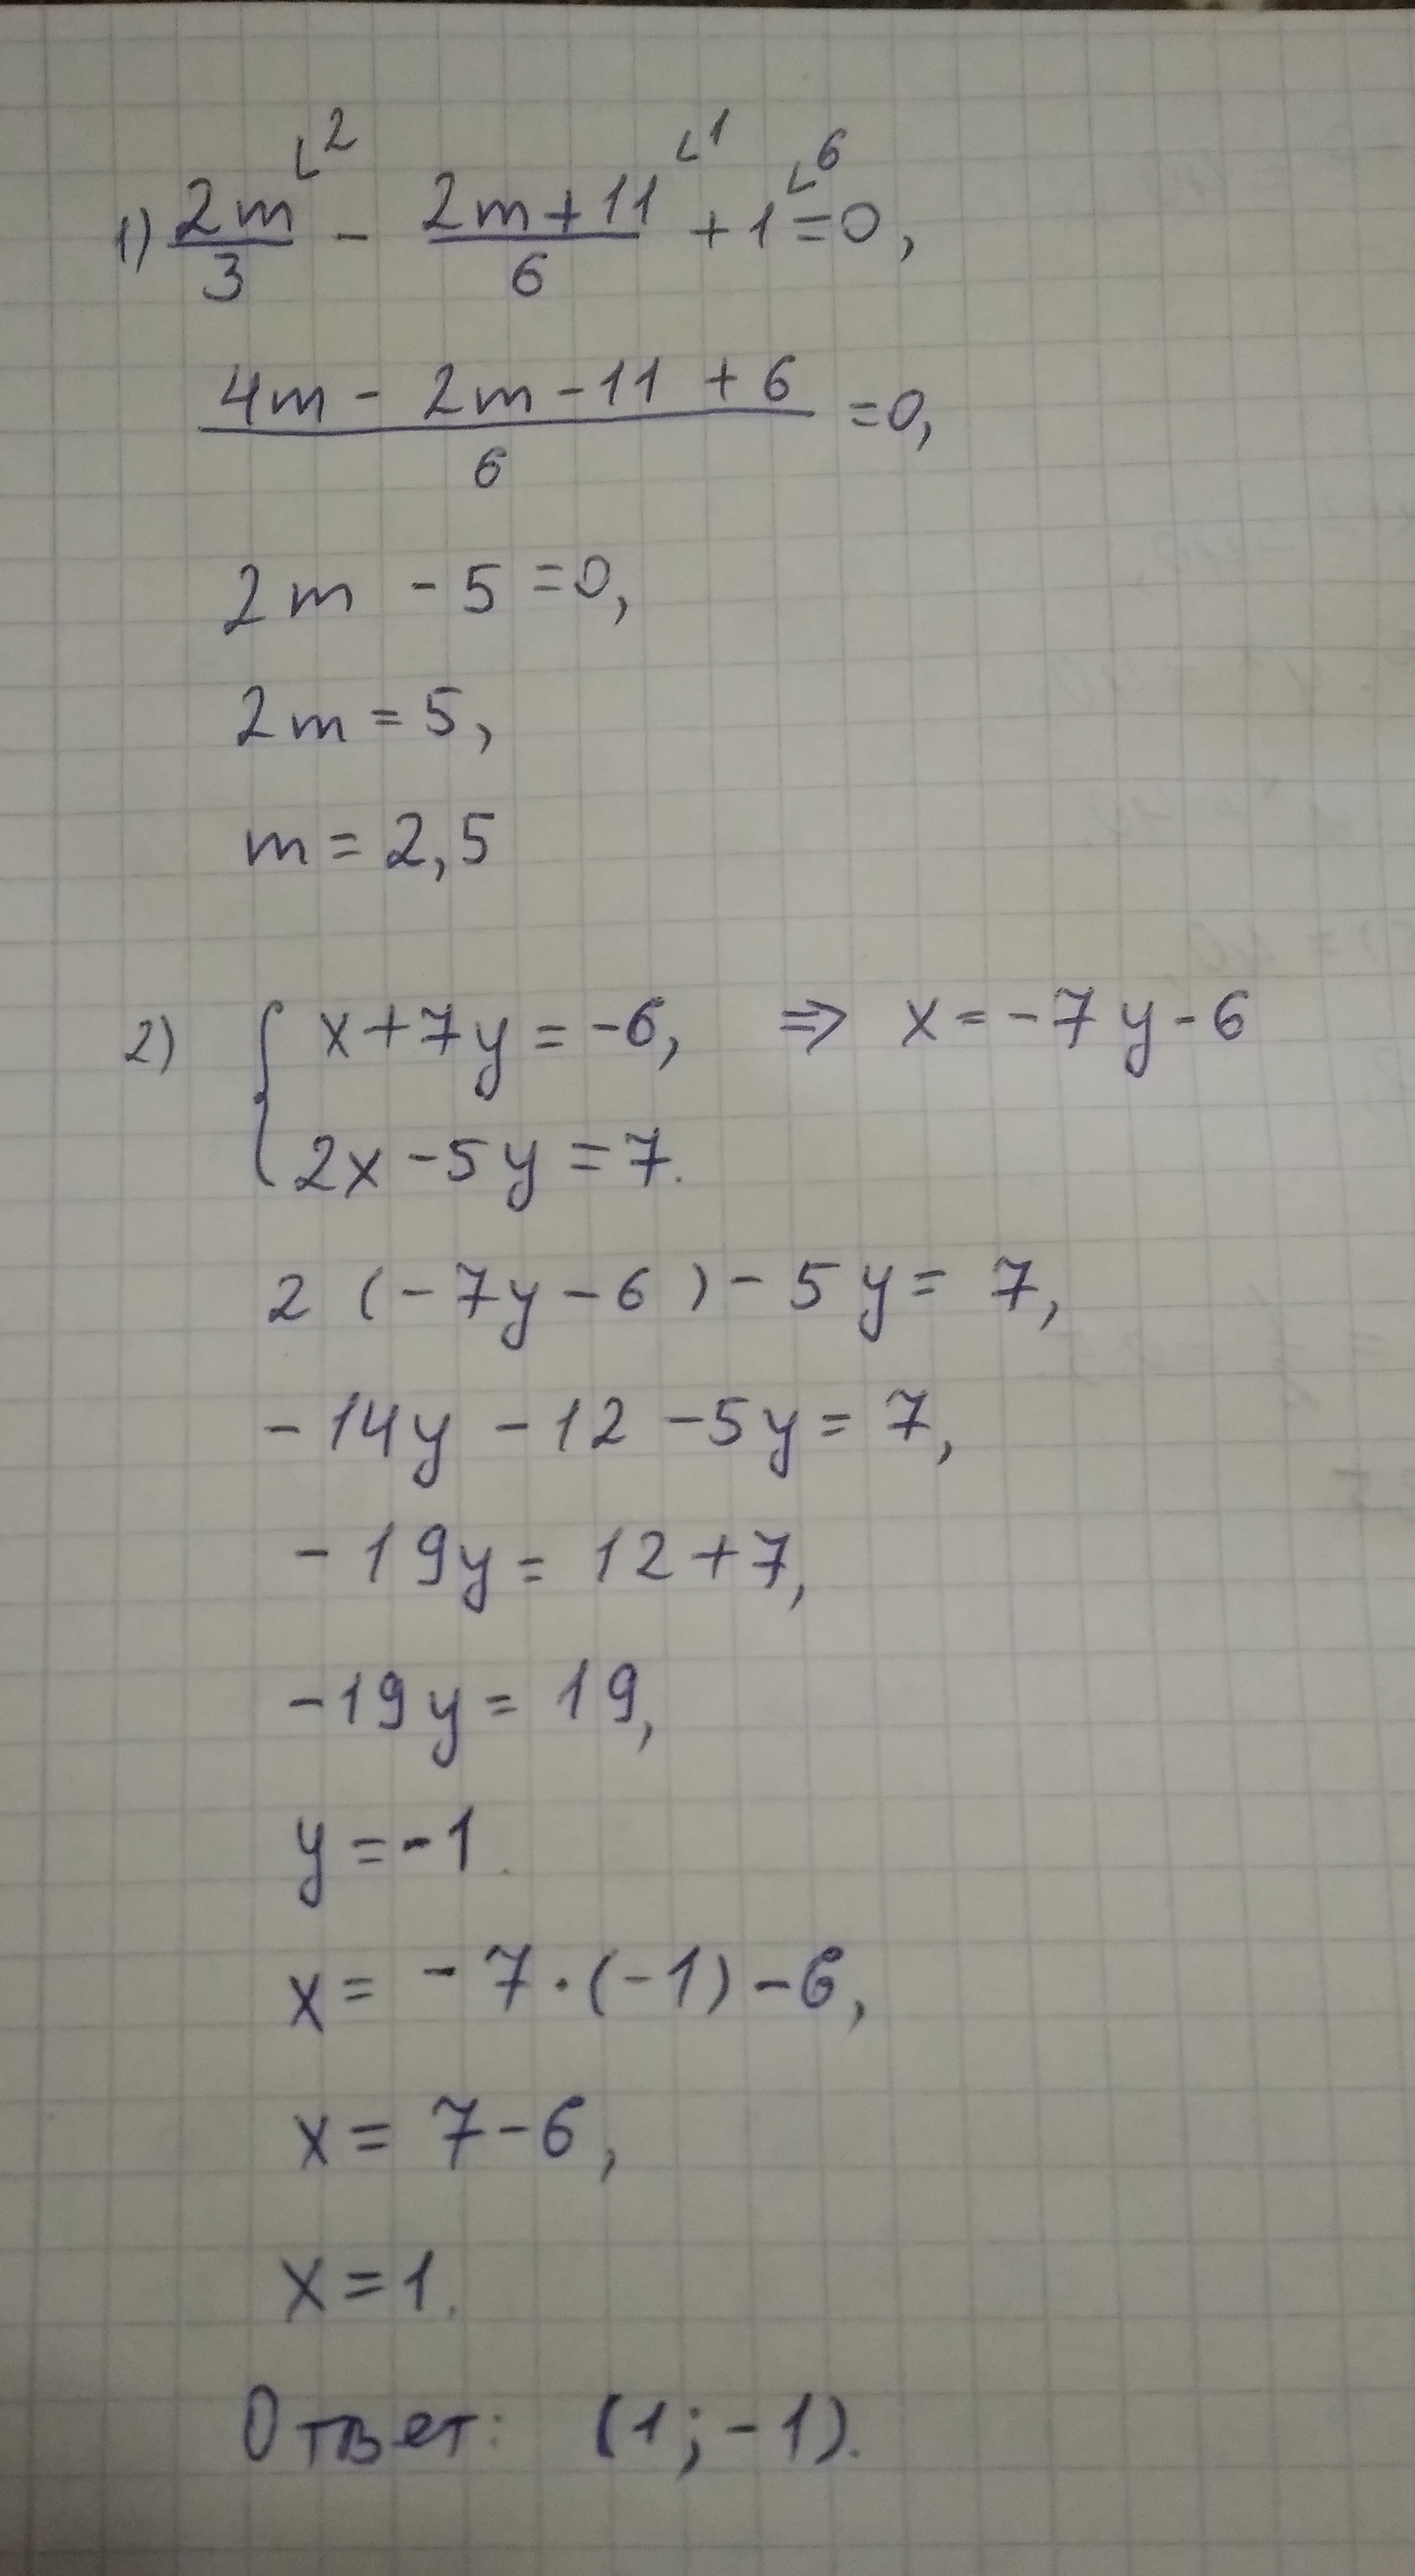 1) 2m/3 ∟2 - (2m+11)/6 ∟1 + 1 ∟6 = 0,
(4m - 2m - 11 + 6)/6 = 0,
2m - 5 = 0,
2m = 5,
m = 2,5
2) { x + 7y = -6, ⇒ x = -7y - 6
2x - 5y = 7.
2 (-7y - 6) - 5y = 7,
-14y - 12 - 5y = 7,
-19y = 12 + 7,
-19y = 19,
y = -1.
x = -7 · (-1) - 6,
x = 7 - 6,
x = 1.
Ответ: (1; -1).